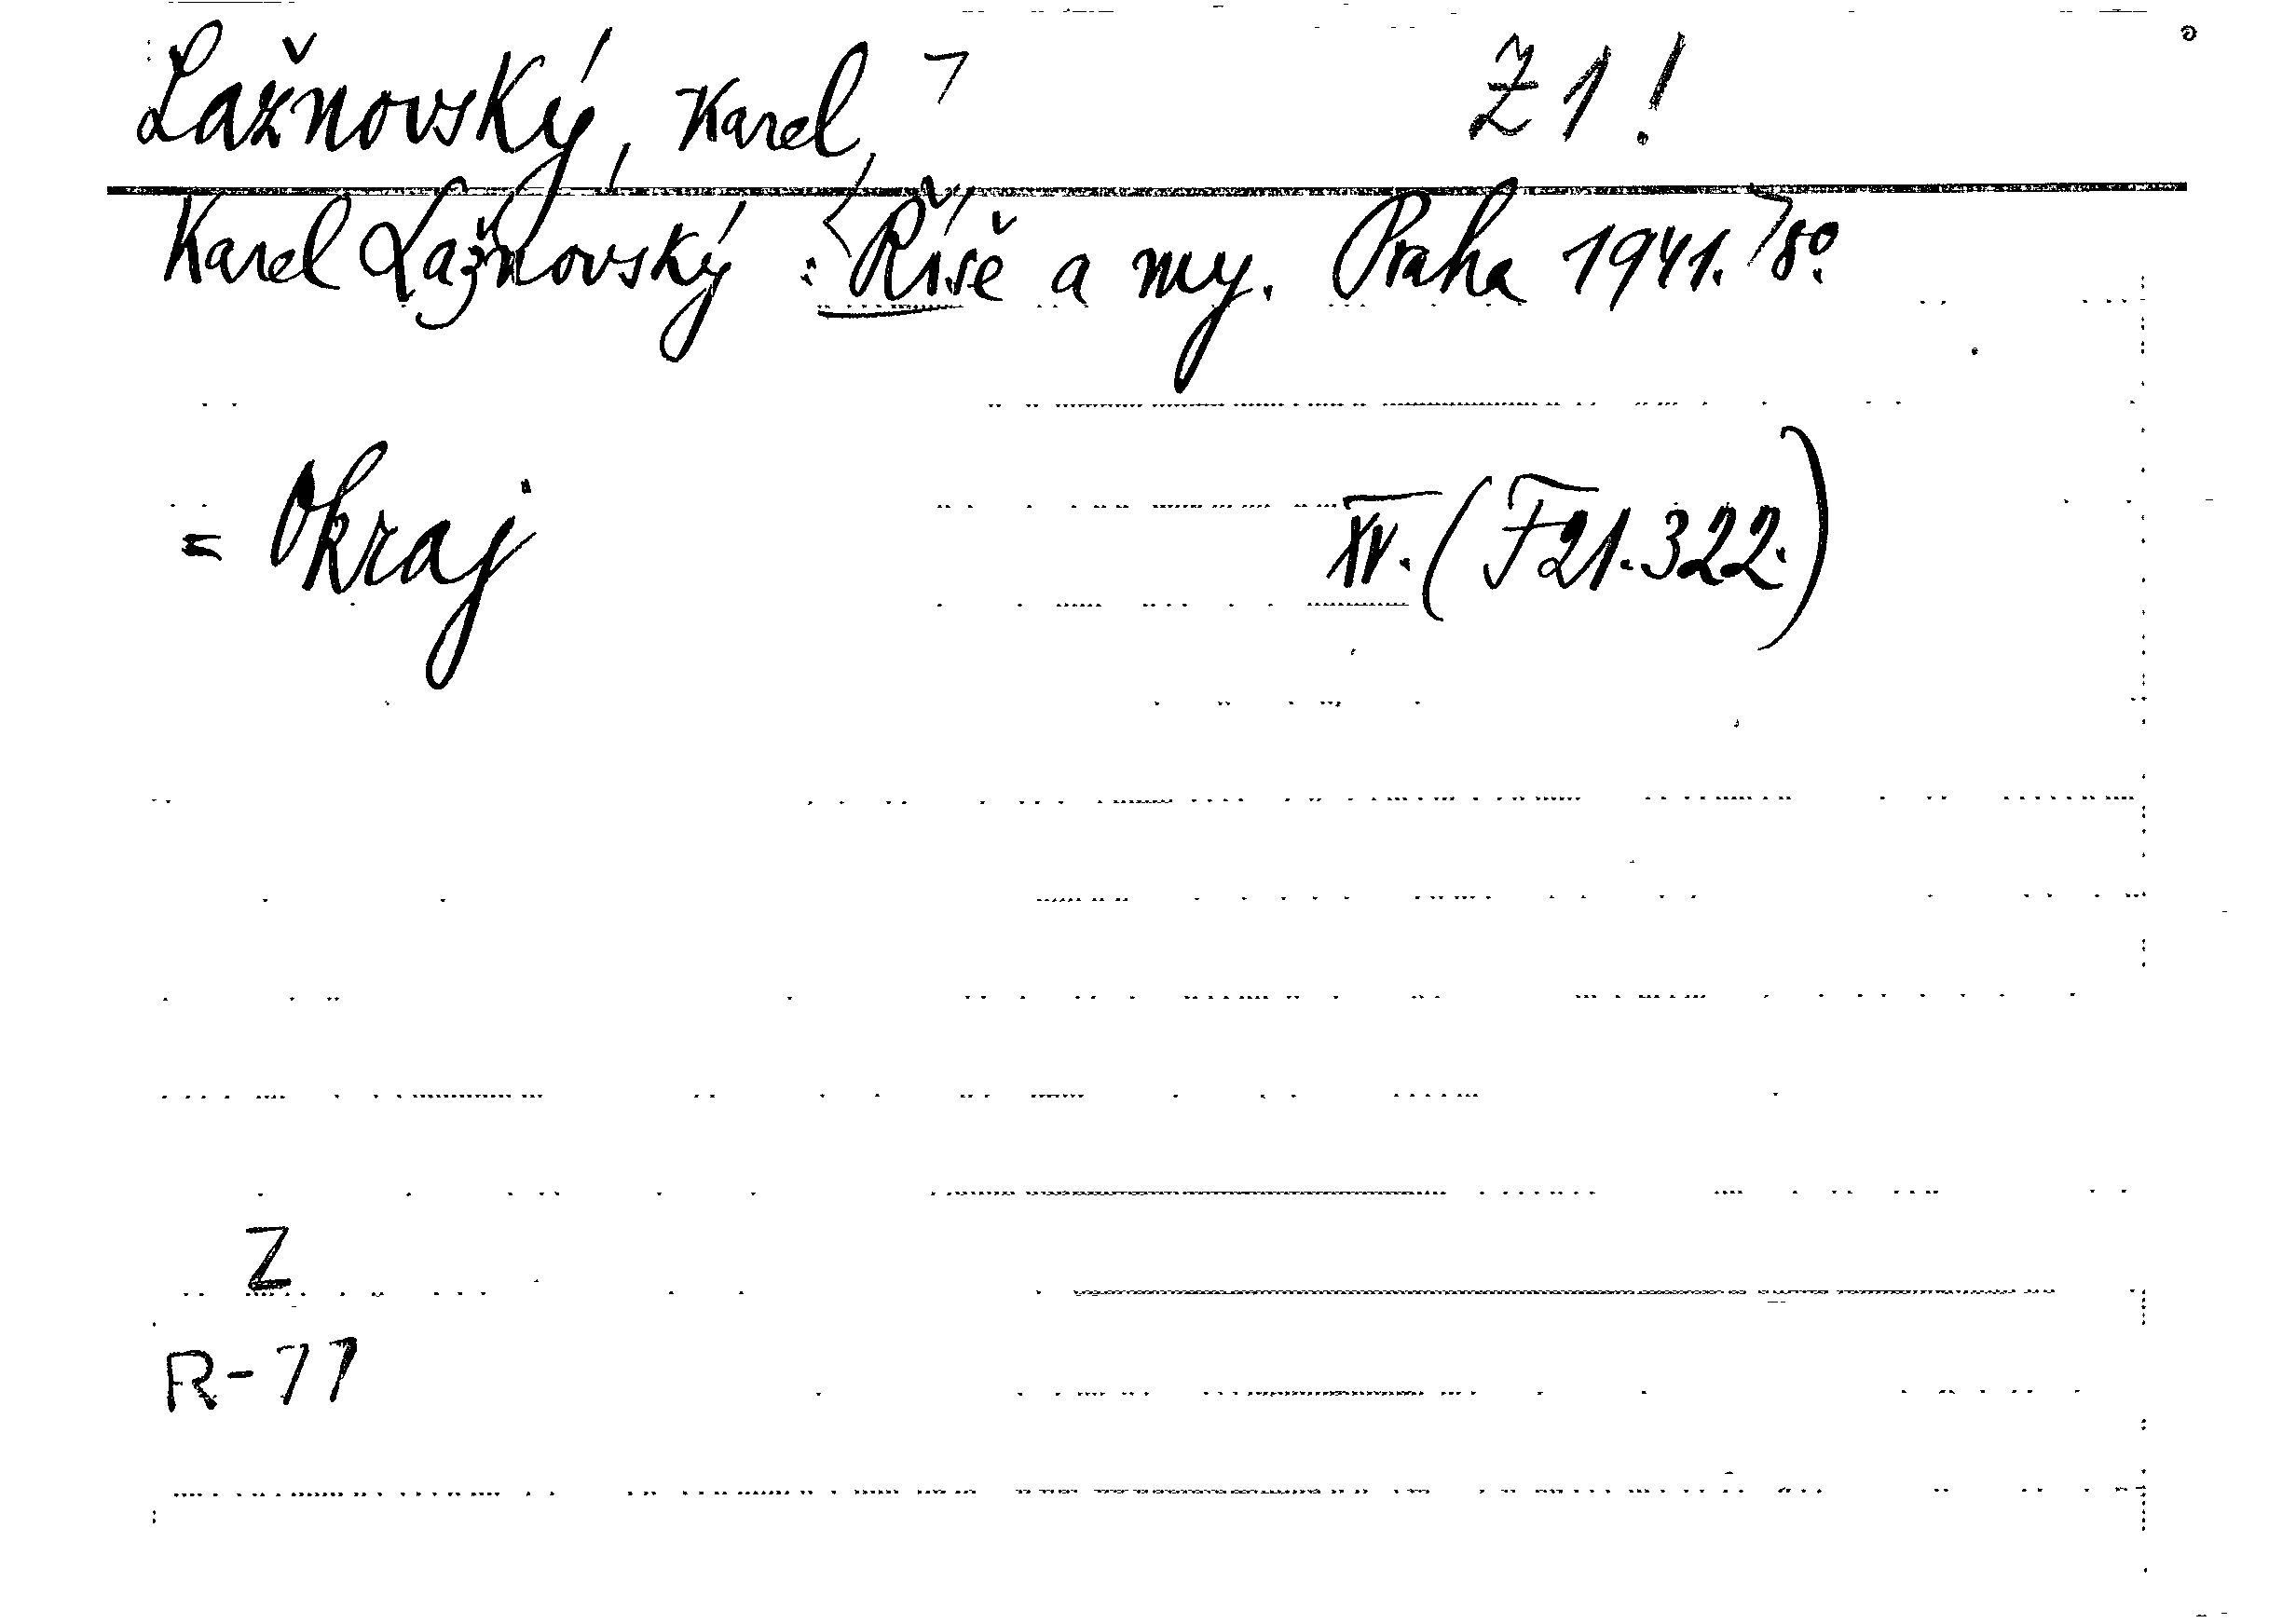 Lažnovský, Karel, Z 1!
Karel Lažnovský : Říše a my. Praha 1941. 8°.
= Okraj XV. (F 21.322.)
Z
R-77